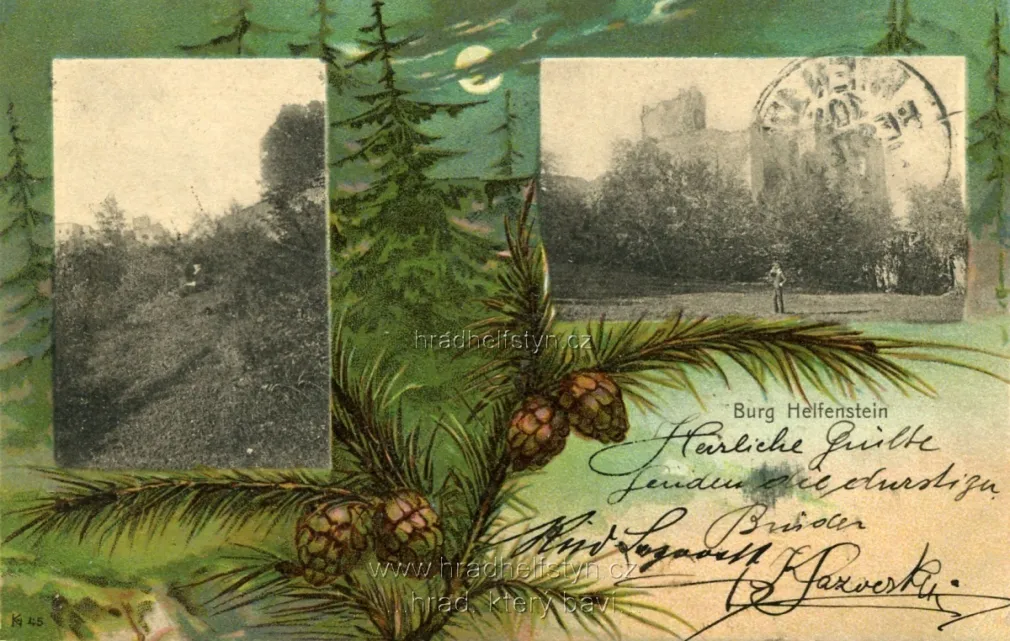 hradhelfstyn.cz
Burg Helfenstein
Herrliche Grüße
senden die durstigen
Brüder
www.hradhelfstyn.cz
hrad, který baví
45